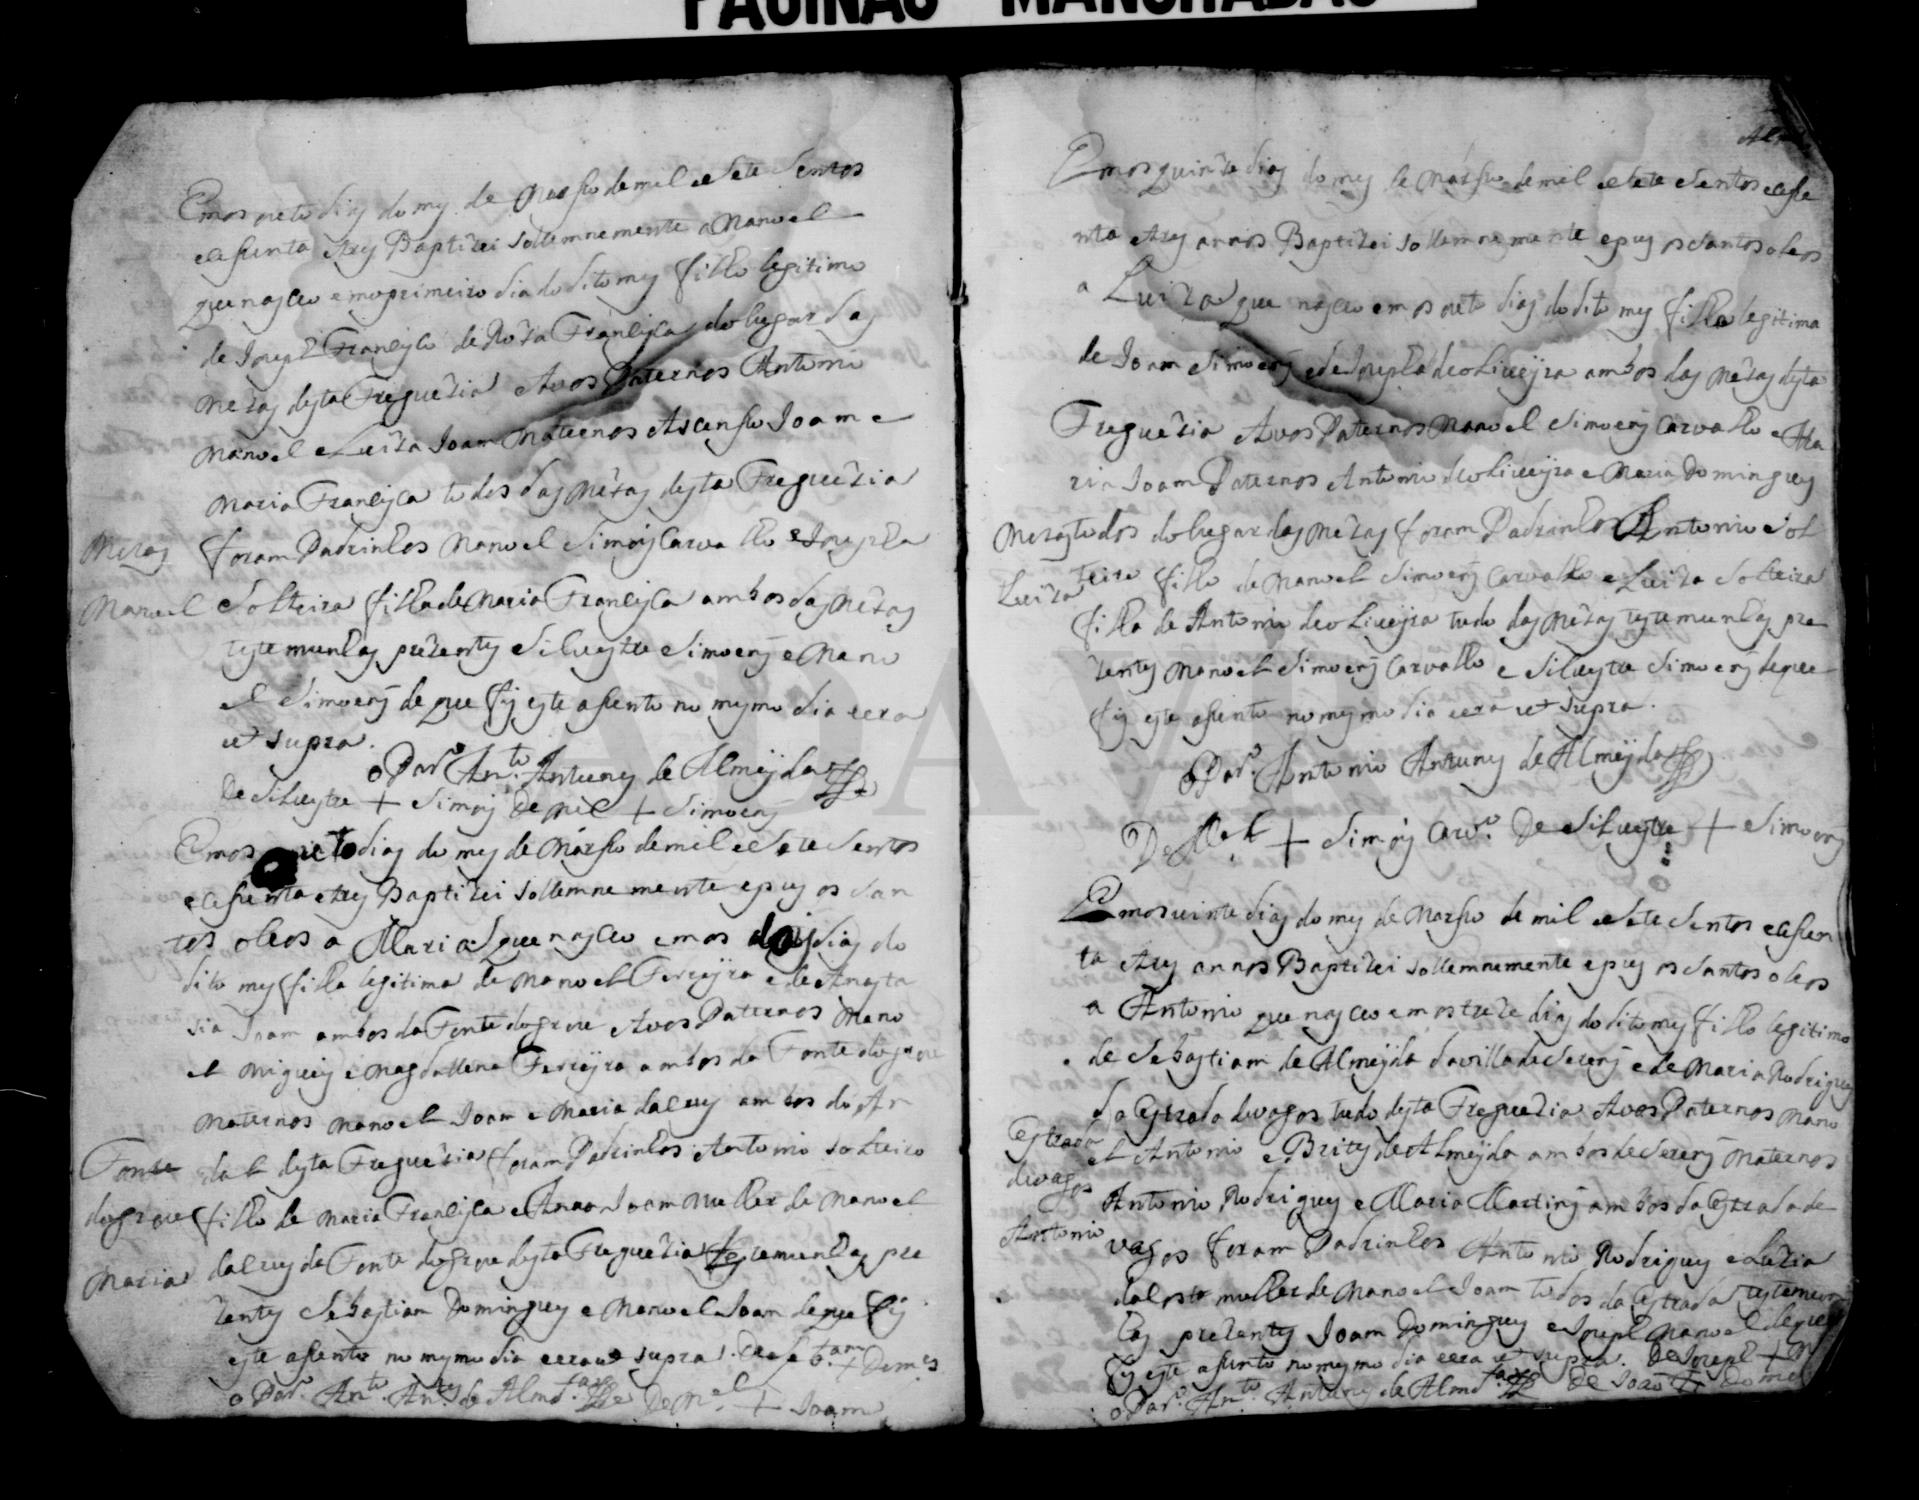 PAGINAS MANCHADAS
Emos outo dias do mes de Marso de mil e Sete Sentos
e cesenta e tres Baptizei Sollemnemente a Manoel
que nasceo em o primeiro dia do dito mes filho legitimo
de Joseph Francisco de Roza Francisca do lugar das
Mezas desta Freguezia Avos Paternos Antonio
Manoel e Luiza Joam Maternos Ascenso Joam e
Maria Francisca todos das Mezas desta Freguezia
Mezas
foram Padrinhos Manoel Simois Carvalho e Josepha
Manoel
Solteira filha de Maria Francisca ambos das Mezas
testemunhas prezentes Silvestre Simoens e Mano
el Simoens de que fis este asento no mesmo dia e era
ut supra.
o Par.º An.to Antunes de Almeyda
De Silvestre + Simois De M.el + Simoens
Emos outo dias do mes de Marso de mil e Sete Sentos
e cesenta e tres Baptizei Sollemnemente e pus os San
tos oleos a Maria que nasceo emos dois dias do
dito mes filha legitima de Manoel Ferreyra e de Anasta
sia Joam ambos da Fonte do grou Avos Paternos Mano
el Migueis e Magdallena Ferreyra ambos da Fonte do grou
Maternos Manoel Joam e Maria da Cruz ambos do Ar
Fonte
dal desta Freguezia foram Padrinhos Antonio Solteiro
do grou
filho de Maria Francisca e Anna Joam mulher de Manoel
Maria
da Cruz da Fonte do grou desta Freguezia testemunhas pre
zentes Sebastiam Domingues e Manoel Joam de que fis
este asento no mesmo dia e era ut supra. De Seb.am + Dom.es
o Par.º An.to Ant.es de Almd.a De M.el + Joam
Emos quinze dias do mes de Marso de mil e Sete Sentos e cese
nta e tres annos Baptizei Sollemnemente e pus os Santos oleos
a Luiza que nasceo emos outo dias do dito mes filha legitima
de Joam Simoens e de Josepha de oLiveyra ambos das Mezas desta
Freguezia Avos Paternos Manoel Simoens Carvalho e Ma
ria Joam Paternos Antonio de oLiveyra e Maria Domingues
Mezas
todos do lugar das Mezas foram Padrinhos Antonio Sol
Luiza
teiro filho de Manoel Simoens Carvalho e Luiza Solteira
filha de Antonio de oLiveyra tudo das Mezas testemunhas pre
zentes Manoel Simoens Carvalho e Silvestre Simoens de que
fis este asento no mesmo dia e era ut supra.
o Par.º Antonio Antunes de Almeyda
De M.el + Simois Carv.º De Silvestre + Simoens
Emos vinte dias do mes de Marso de mil e Sete Sentos e cesen
ta e tres annos Baptizei Sollemnemente e pus os Santos oleos
a Antonio que nasceo emos treze dias do dito mes filho legitimo
de Sebastiam de Almeyda da villa de Serens e de Maria Rodrigues
da Estrada de vagos tudo desta Freguezia Avos Paternos Mano
Estrada
el Antonio e Brites de Almeyda ambos de Serens Maternos
de vagos
Antonio Rodrigues e Maria Martins ambos da Estrada de
Antonio
vagos foram Padrinhos Antonio Rodrigues e Luzia
da Costa mulher de Manoel Joam todos da Estrada testemun
has prezentes Joam Domingues e Joseph Manoel de que
fis este asento no mesmo dia e era ut supra. De Joseph + M
o Par.º An.to Antunes de Almd.a De Joaõ + Domes
ADAVR